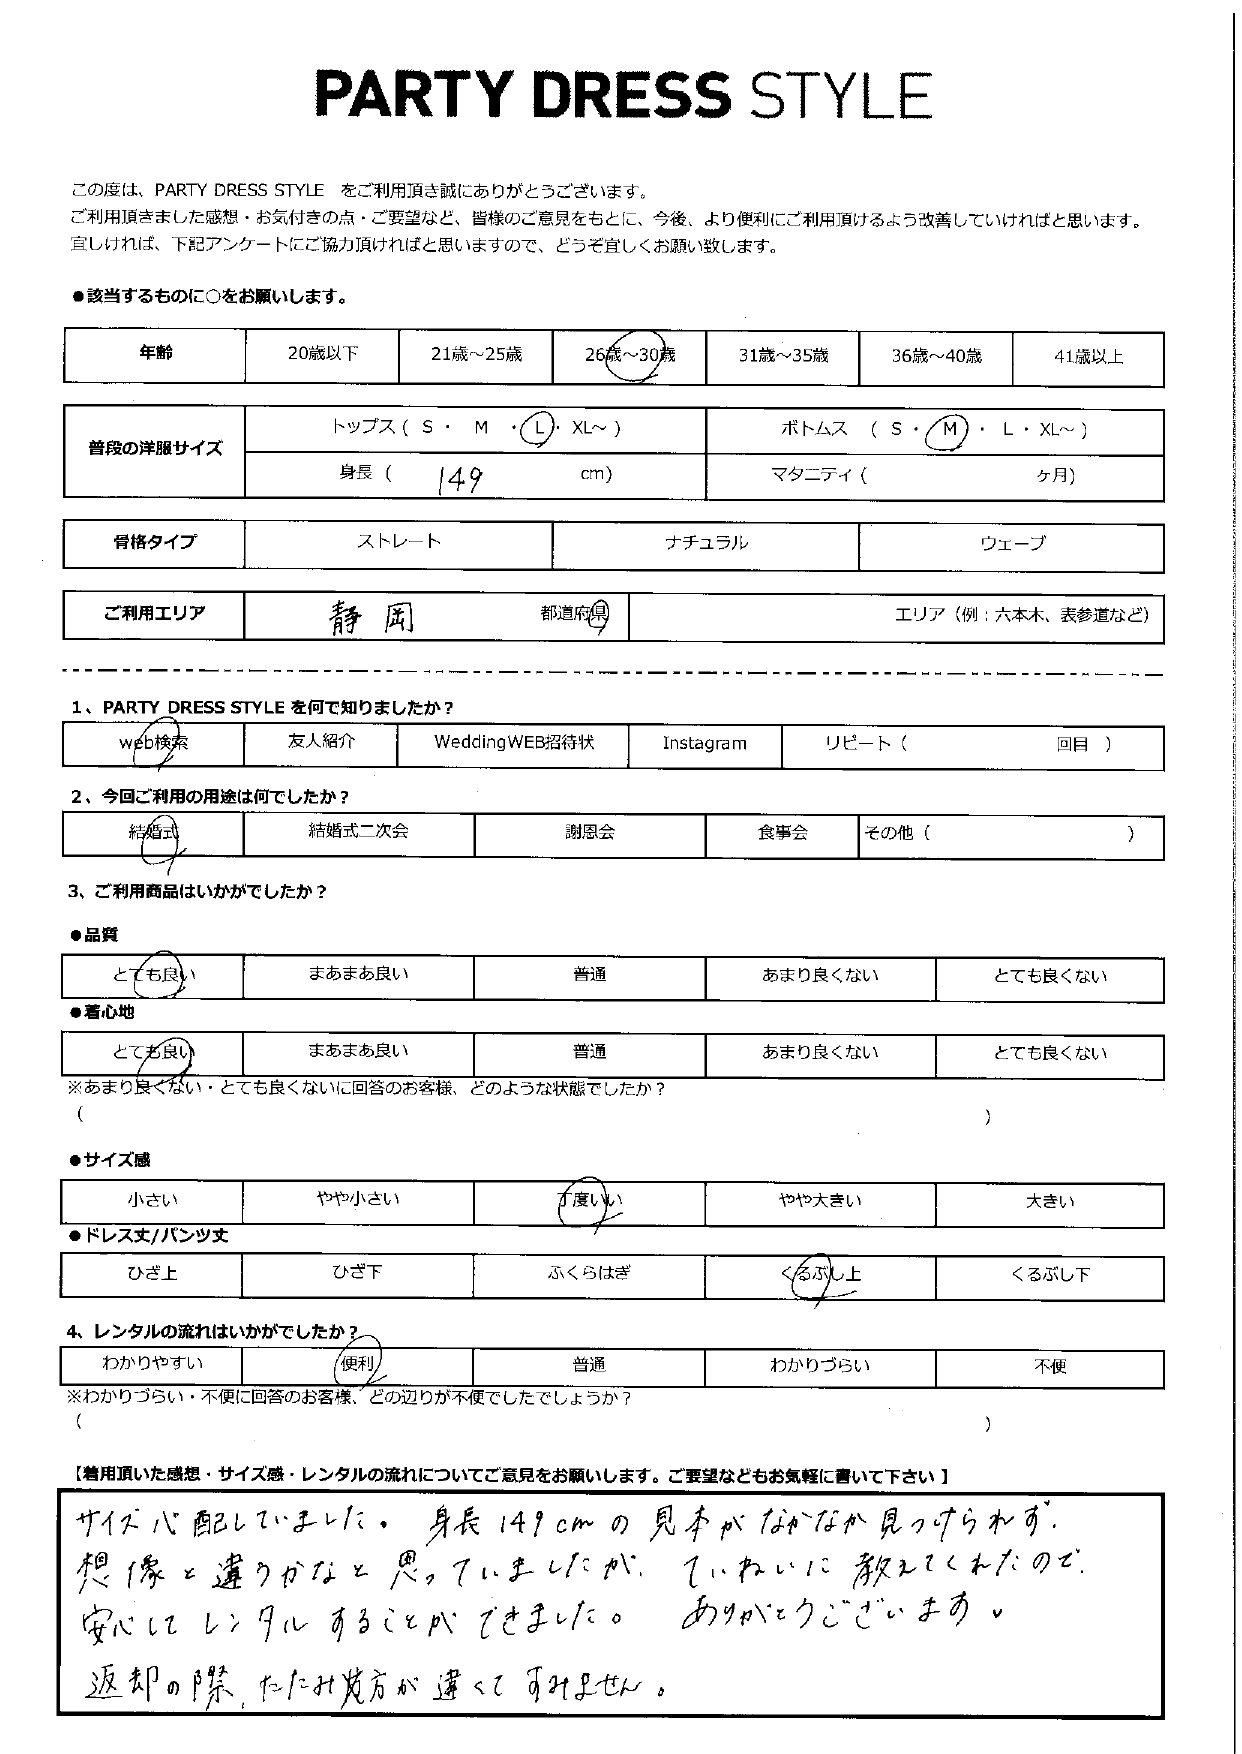 PARTY DRESS STYLE
この度は、PARTY DRESS STYLE をご利用頂き誠にありがとうございます。
ご利用頂きました感想・お気付きの点・ご要望など、皆様のご意見をもとに、今後、より便利にご利用頂けるよう改善していければと思います。
宜しければ、下記アンケートにご協力頂ければと思いますので、どうぞ宜しくお願い致します。
●該当するものに○をお願いします。
年齢 20歳以下 21歳～25歳 26歳～30歳 31歳～35歳 36歳～40歳 41歳以上
普段の洋服サイズ トップス ( S ・ M ・ L ・ XL～ ) ボトムス ( S ・ M ・ L ・ XL～ )
身長 ( 149 cm) マタニティ ( ヶ月)
骨格タイプ ストレート ナチュラル ウェーブ
ご利用エリア 静岡 都道府県 エリア（例：六本木、表参道など）
1、PARTY DRESS STYLE を何で知りましたか？
web検索 友人紹介 WeddingWEB招待状 Instagram リピート ( 回目 )
2、今回ご利用の用途は何でしたか？
結婚式 結婚式二次会 謝恩会 食事会 その他 ( )
3、ご利用商品はいかがでしたか？
●品質
とても良い まあまあ良い 普通 あまり良くない とても良くない
●着心地
とても良い まあまあ良い 普通 あまり良くない とても良くない
※あまり良くない・とても良くないに回答のお客様、どのような状態でしたか？
( )
●サイズ感
小さい やや小さい 丁度いい やや大きい 大きい
●ドレス丈/パンツ丈
ひざ上 ひざ下 ふくらはぎ くるぶし上 くるぶし下
4、レンタルの流れはいかがでしたか？
わかりやすい 便利 普通 わかりづらい 不便
※わかりづらい・不便に回答のお客様、どの辺りが不便でしたでしょうか？
( )
【着用頂いた感想・サイズ感・レンタルの流れについてご意見をお願いします。ご要望などもお気軽に書いて下さい】
サイズ心配していました。身長149cmの見本がなかなか見つけられず、
想像と違うかなと思っていましたが、ていねいに教えてくれたので、
安心してレンタルすることができました。ありがとうございます。
返却の際、たたみ方が違くてすみません。